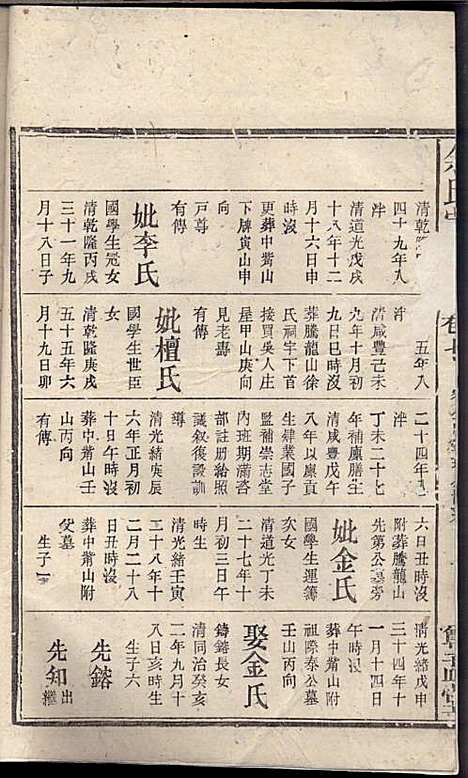 清乾隆
四十九年八
泮
清道光戊戌
十八年十二
月十六日申
時沒
更葬中觜山
下牌寅山申
向
戸尊
有傳
妣李氏
國學生冠女
清乾隆丙戌
三十一年九
月十八日子
五年八
泮
清咸豐己未
九年十月初
九日巳時沒
葬騰龍山徐
氏祠宇下首
接買吳人庄
屋甲山庚向
見老壽
有傳
妣檀氏
國學生世臣
女
清乾隆庚戌
五十五年六
月十九日卯
二十四年
泮
丁未二十七
年補廩膳生
清咸豐戊午
八年以廩貢
生肄業國子
監補崇志堂
內班期滿咨
部註册給照
議叙復設訓
導
清光緒庚辰
六年正月初
十日午時沒
葬中觜山壬
山丙向
有傳
六日丑時沒
附葬騰龍山
先第公墓旁
妣金氏
國學生運簿
次女
清道光丁未
二十七年十
月初三日午
時生
清光緒壬寅
二十八年十
二月二十八
日丑時沒
葬中觜山附
父墓
生子一
清光緒戊申
三十四年十
一月十四日
午時沒
葬中觜山附
祖際春公墓
壬山丙向
娶金氏
鑄長女
清同治癸亥
二年九月十
八日亥時生
生子六
先鎔
先知 出繼